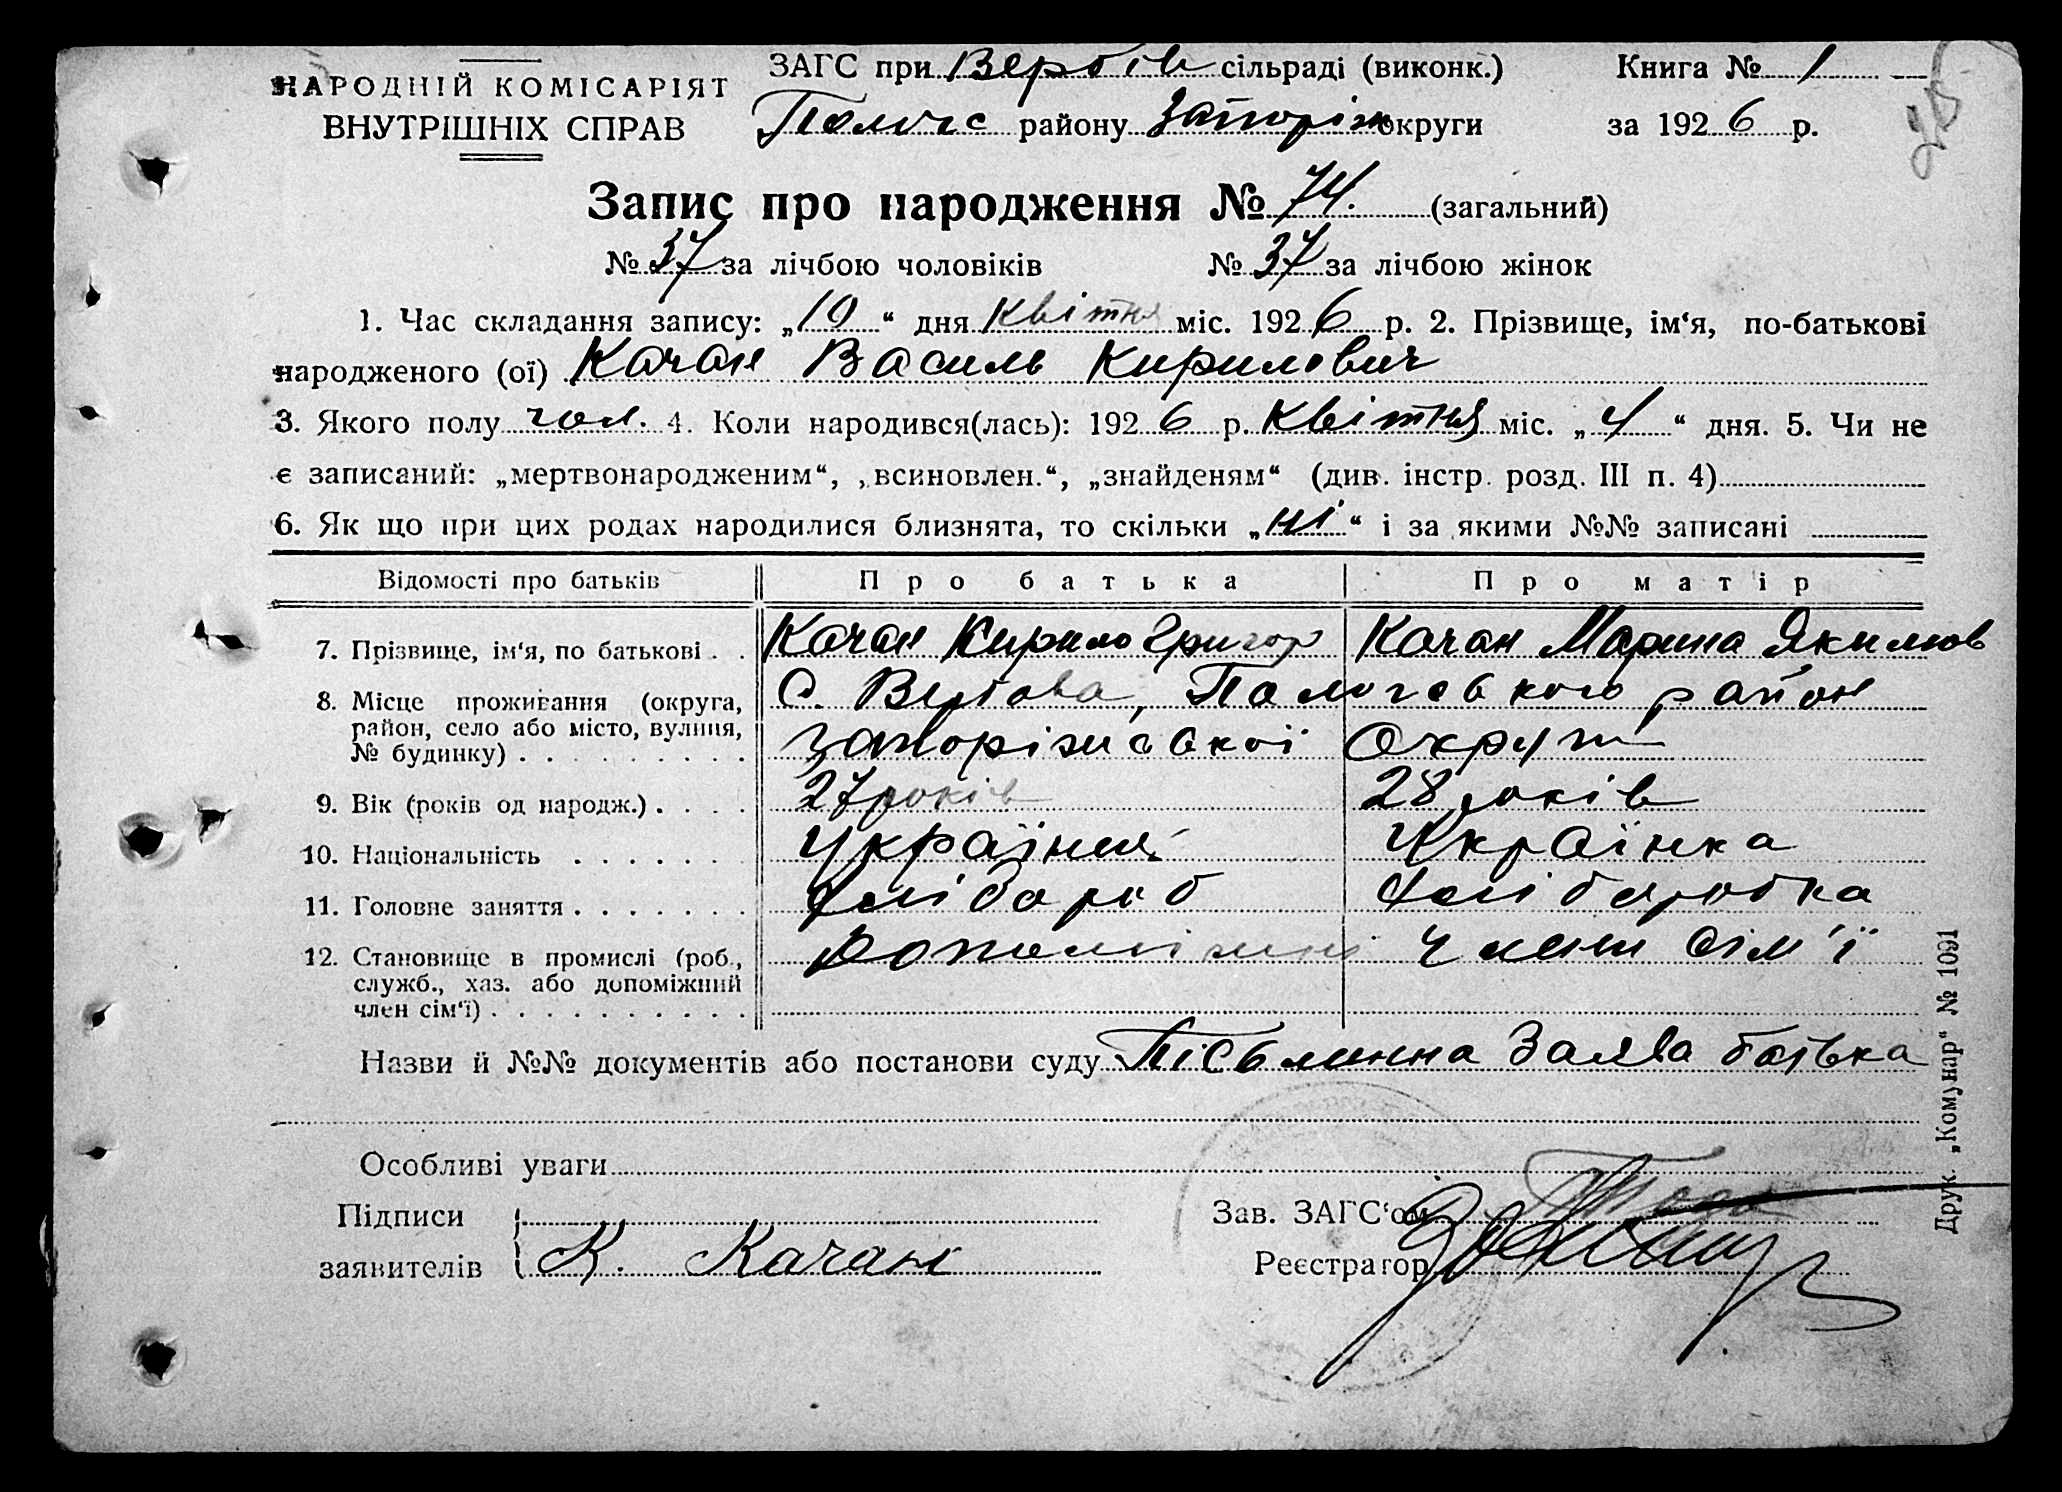 НАРОДНІЙ КОМІСАРІЯТ
ВНУТРІШНІХ СПРАВ
ЗАГС при Вербів сільраді (виконк.)
Пологс району Запоріж округи
Книга № 1
за 1926 р.
Запис про народження № 74. (загальний)
№ 37 за лічбою чоловіків № 37 за лічбою жінок
1. Час складання запису: „10“ дня Квітня міс. 1926 р. 2. Прізвище, ім‘я, по-батькові
народженого (ої) Качан Василь Кирилович
3. Якого полу чол. 4. Коли народився(лась): 1926 р. Квітня міс. „4“ дня. 5. Чи не
є записаний: „мертвонародженим“, „всиновлен.“, „знайденям“ (див. інстр. розд. III п. 4)
6. Як що при цих родах народилися близнята, то скільки „ні“ і за якими №№ записані
Відомості про батьків Про батька Про матір
7. Прізвище, ім‘я, по батькові . . Качан Кирило Григор Качан Марина Якимов
8. Місце проживання (округа,
район, село або місто, вулиця,
№ будинку) . . . . . . . . .
С. Вербова, Пологовського район
Запоріжської Округи
9. Вік (років од народж.) . . . . 27 років 28 років
10. Національність . . . . . . . Українец Українка
11. Головне заняття . . . . . . . Хлібороб Хліборобка
12. Становище в промислі (роб.,
служб., хаз. або допоміжний
член сім‘ї) . . . . . . . . . .
Допоміжні члени сім'ї
Назви й №№ документів або постанови суду Пісьминна Заява батька
Особливі уваги
Підписи
заявителів К. Качан
Зав. ЗАГС‘ом
Реєстратор
Друк. „Комунар“ № 1091